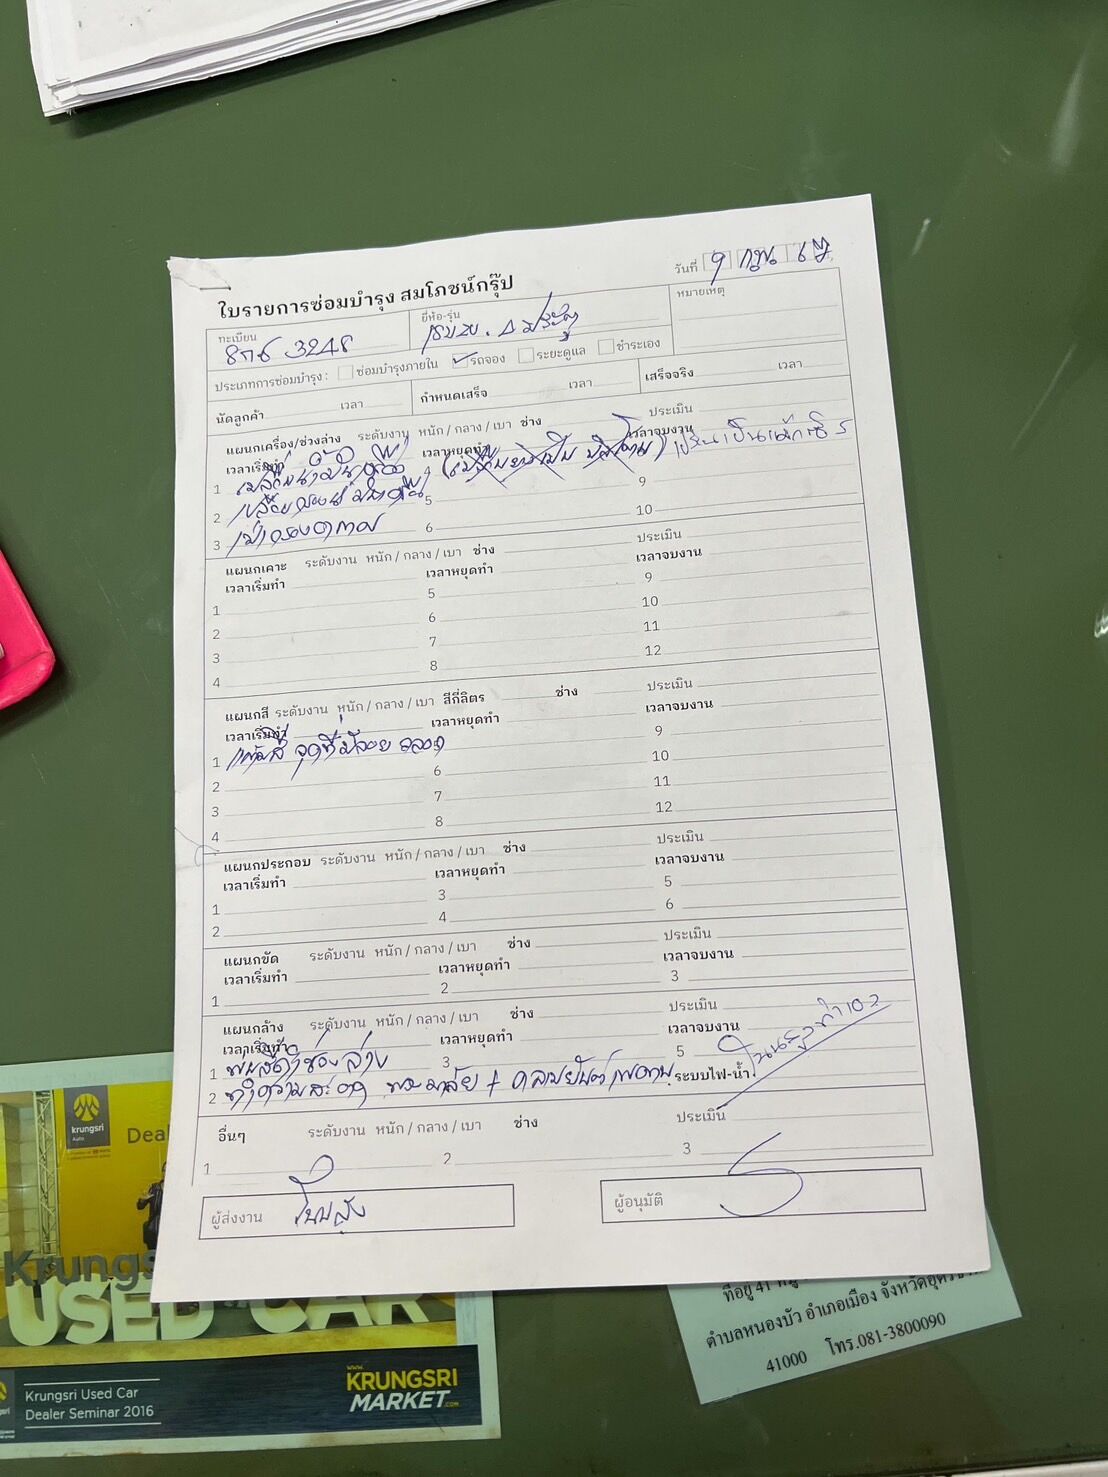 ใบรายการซ่อมบำรุง สมโภชน์กรุ๊ป
วันที่ 9 กพ 67
ทะเบียน 3248
ยี่ห้อ-รุ่น
หมายเหตุ
ประเภทการซ่อมบำรุง : ซ่อมบำรุงภายใน ✓ รถจอง ระยะดูแล ชำระเอง
นัดลูกค้า เวลา กำหนดเสร็จ เวลา เสร็จจริง เวลา
แผนกเครื่อง/ช่วงล่าง ระดับงาน หนัก / กลาง / เบา ช่าง ประเมิน
เวลาเริ่มทำ เวลาหยุดทำ เวลาจบงาน
1 เปลี่ยนน้ำมันเครื่อง 4
2 5 9
3 เป่ากรองอากาศ 6 10
แผนกเคาะ ระดับงาน หนัก / กลาง / เบา ช่าง ประเมิน
เวลาเริ่มทำ เวลาหยุดทำ เวลาจบงาน
1 5 9
2 6 10
3 7 11
4 8 12
แผนกสี ระดับงาน หนัก / กลาง / เบา สีกี่ลิตร ช่าง ประเมิน
เวลาเริ่มทำ เวลาหยุดทำ เวลาจบงาน
1 แต้มสี จุดที่มีรอย ถลอก 9
2 6 10
3 7 11
4 8 12
แผนกประกอบ ระดับงาน หนัก / กลาง / เบา ช่าง ประเมิน
เวลาเริ่มทำ เวลาหยุดทำ เวลาจบงาน
1 3 5
2 4 6
แผนกขัด ระดับงาน หนัก / กลาง / เบา ช่าง ประเมิน
เวลาเริ่มทำ เวลาหยุดทำ เวลาจบงาน
1 2 3
แผนกล้าง ระดับงาน หนัก / กลาง / เบา ช่าง ประเมิน
เวลาเริ่มทำ เวลาหยุดทำ เวลาจบงาน
1 พ่นสีดำช่วงล่าง 3 5
2 ทำความสะอาด พวงมาลัย + ระบบไฟ-น้ำ
อื่นๆ ระดับงาน หนัก / กลาง / เบา ช่าง ประเมิน
1 2 3
ผู้ส่งงาน
ผู้อนุมัติ
krungsri
Auto
Deal
Krungs
USED CAR
Krungsri Used Car
Dealer Seminar 2016
www.
KRUNGSRI
MARKET.com
ที่อยู่ 41
ตำบลหนองบัว อำเภอเมือง จังหวัดอุดร
41000 โทร.081-3800090